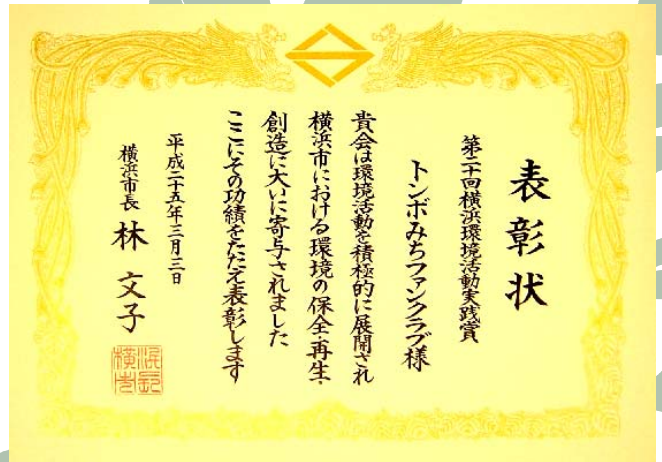 表彰状
第二十回横浜環境活動実践賞
トンボみちファンクラブ様
貴会は環境活動を積極的に展開され
横浜市における環境の保全・再生・
創造に大いに寄与されました
ここにその功績をたたえ表彰します
平成二十五年三月三日
横浜市長 林 文子